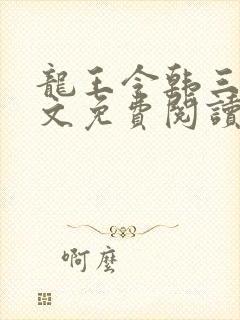 龍王令韩三
文免費閱讀
啊麼